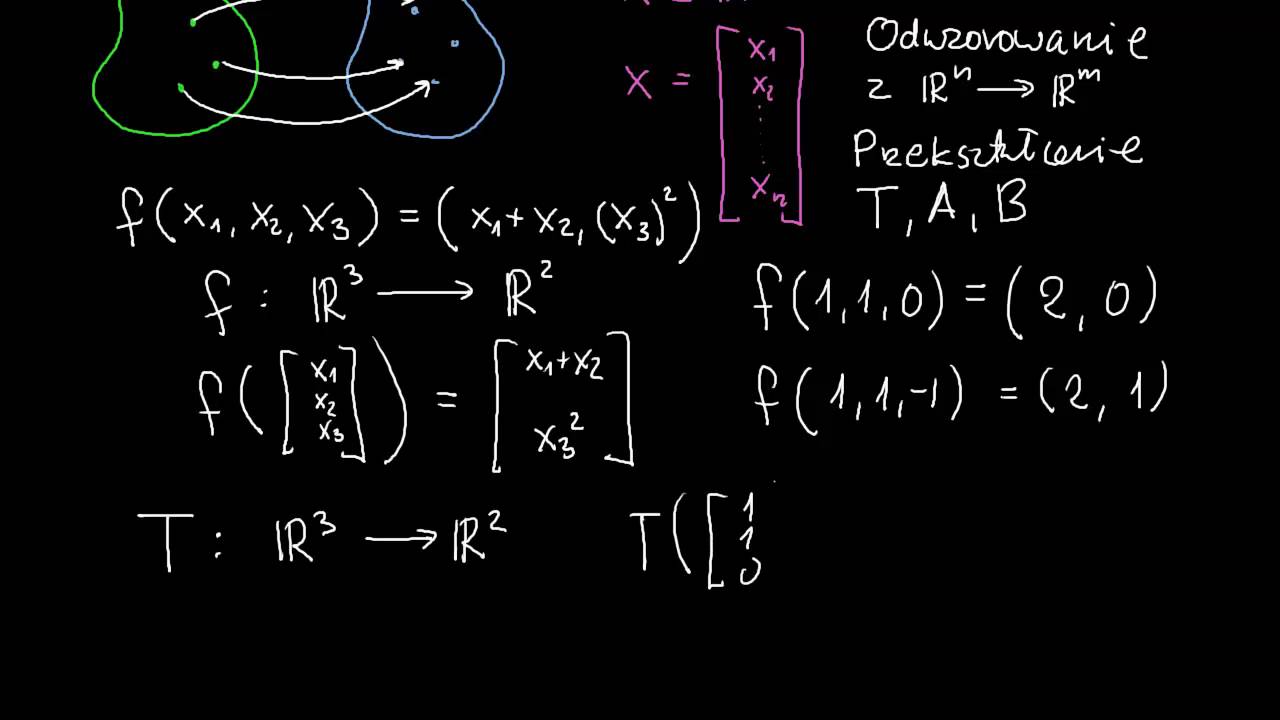 Odwzorowanie
z ℝⁿ ⟶ ℝᵐ
Przekształcenie
T, A, B
x = [x₁ x₂ ⋮ xₙ]
f(x₁, x₂, x₃) = (x₁+x₂, (x₃)²)
f : ℝ³ ⟶ ℝ²
f(1,1,0) = (2, 0)
f([x₁ x₂ x₃]) = [x₁+x₂ x₃²]
f(1,1,-1) = (2, 1)
T : ℝ³ ⟶ ℝ²
T([1 1 0